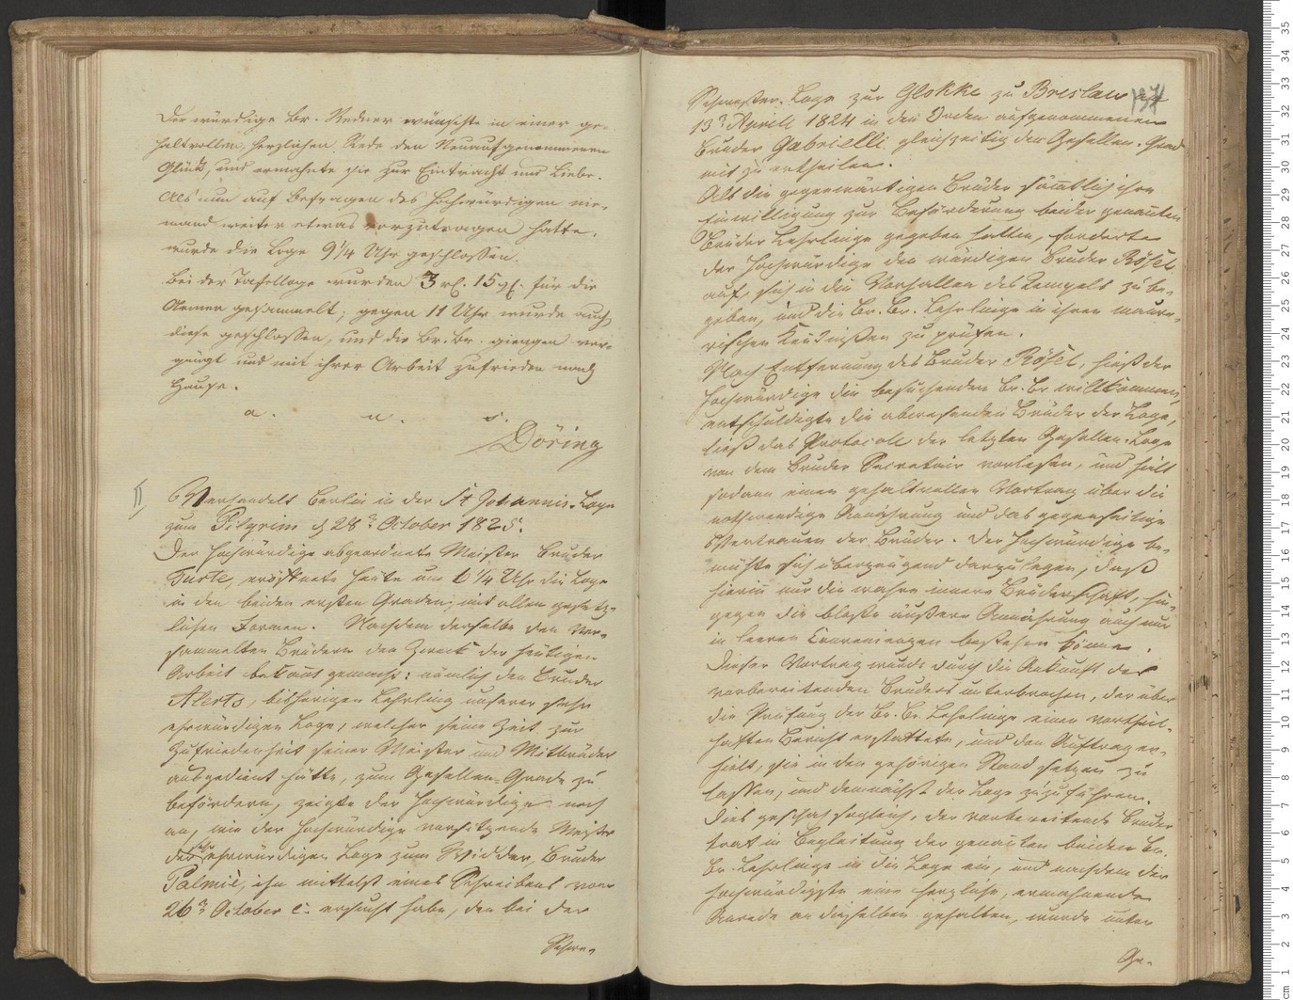 Der würdige Br. Redner wünschte in einer ge-
haltvollen, herzlichen Rede den Neuaufgenommenen
Glück, und ermahnte sie zur Eintracht und Liebe.
Als nun auf Befragen des Hochwürdigen nie-
mand weiter etwas vorzutragen hatte,
wurde die Loge 9 1/4 Uhr geschlossen.
Bei der Tafelloge wurden 3 rl. 15 gl. für die
Armen gesammelt; gegen 11 Uhr wurde auch
diese geschlossen, und die Br. Br. giengen ver-
gnügt und mit ihrer Arbeit zufrieden nach
Hause.
a. u. s.
Döring
II
Verhandelt Berlin in der St Johannis-Loge
zum Pilgrim d 28n October 1825.
Der Hochwürdige abgeordnete Meister Bruder
eröffnete heute um 6 1/4 Uhr die Loge
in den beiden ersten Graden, mit allen gesetz-
lichen Formen. Nachdem derselbe den ver-
sammelten Brüdern den Zweck der heutigen
Arbeit bekannt gemacht: nämlich den Bruder
Alerts, bisherigen Lehrling unserer sehr
ehrwürdigen Loge, welcher seine Zeit zur
Zufriedenheit seiner Meister und Mitbrüder
ausgedient hätte, zum Gesellen-Grade zu
befördern, zeigte der Hochwürdige noch
an, wie der Hochwürdige vorsitzende Meister
der sehr ehrwürdigen Loge zum Widder, Bruder
Palmié, ihn mittelst eines Schreibens vom
26n October c. ersucht habe, den bei der
Schwe-
137
Schwester-Loge zur Glokke zu Breslau am
13n April 1824 in den Orden aufgenommenen
Bruder Gabrielli gleichzeitig den Gesellen-Grad
mit zu ertheilen.
Als die gegenwärtigen Brüder sämtlich ihre
Einwilligung zur Beförderung beider genannten
Brüder Lehrlinge gegeben hatten, forderte
der Hochwürdige den würdigen Bruder Rösel
auf, sich in die Vorhallen des Tempels zu be-
geben, und die Br. Br. Lehrlinge in ihren maure-
rischen Kentnißen zu prüfen.
Nach Entfernung des Bruder Rösel, hieß der
Hochwürdige die besuchenden Br. Br willkommen,
entschuldigte die abwesenden Brüder der Loge,
ließ das Protocoll der letzten Gesellen-Loge
von dem Bruder Secretair vorlesen, und hielt
sodann einen gehaltvollen Vortrag über die
nothwendige Annährung und das gegenseitige
Vertrauen der Brüder. Der Hochwürdige be-
mühte sich überzeugend darzulegen, daß
hierin nur die wahre innere Bruderschaft, hin-
gegen die bloße äußere Annährung auch nur
in leeren Convenienzen bestehen könne.
Dieser Vortrag wurde durch die Ankunft des
vorbereitenden Bruders unterbrochen, der über
die Prüfung der Br. Br. Lehrlinge einen vortheil-
haften Bericht erstattete, und den Auftrag er-
hielt, sie in den gehörigen Stand setzen zu
lassen, und demnächst der Loge zuzuführen.
Dies geschah sogleich, der vorbereitende Bruder
trat in Begleitung der genanten beiden Br.
Br. Lehrlinge in die Loge ein, und nachdem der
Hochwürdigste eine herzliche, ermahnende
Anrede an dieselben gehalten, wurde unter
Ge-